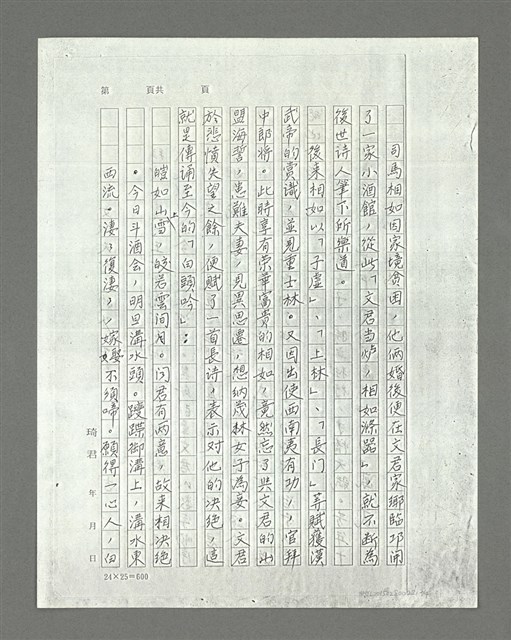 第　頁共　頁
司馬相如因家境貧困，他倆婚後便在文君家鄉臨邛開
了一家小酒館，從此「文君当炉，相如滌器」，就不断為
後世诗人筆下所樂道。
後來相如以「子虛」、「上林」、「長门」等賦獲漢
武帝的赏識，並見重士林。又因出使西南夷有功，官拜
中郎将。此時享有荣華富贵的相如，竟然忘了與文君的山
盟海誓，患難夫妻，見異思遷，想納茂林女子為妾。文君
於悲憤失望之餘，便賦了一首長诗，表示对他的决绝，這
就是傳诵至今的「白頭吟」：
皚如山上雪，皎若雲间月。问君有两意，故来相决绝
。今日斗酒会，明旦溝水頭。躞蹀御溝上，溝水東
西流。淒淒復淒淒，嫁娶不须啼。願得一心人，白
琦君　年　月　日
24×25=600